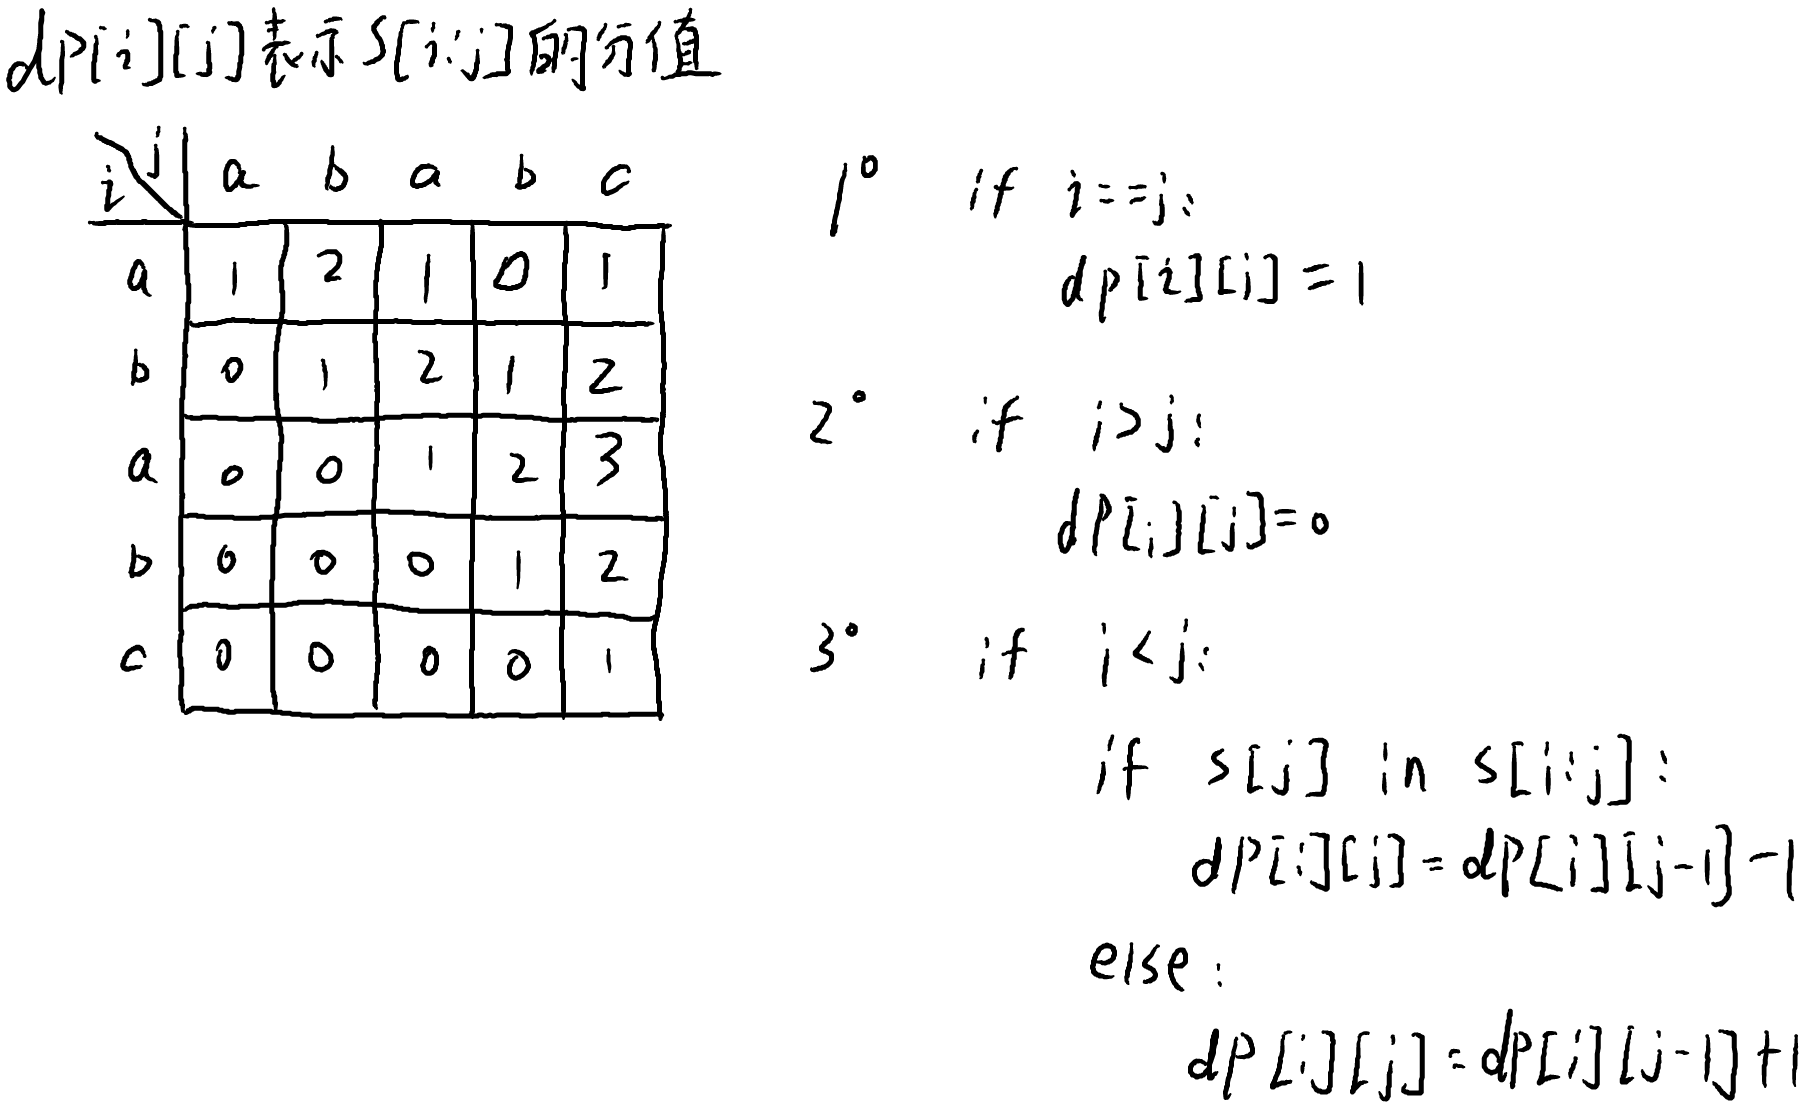 dp[i][j]表示S[i:j]的分值
i j a b a b c
a 1 2 1 0 1
b 0 1 2 1 2
a 0 0 1 2 3
b 0 0 0 1 2
c 0 0 0 0 1
1° if i==j:
dp[i][j]=1
2° if i>j:
dp[i][j]=0
3° if i<j:
if s[j] in s[i:j]:
dp[i][j]=dp[i][j-1]-1
else:
dp[i][j]=dp[i][j-1]+1